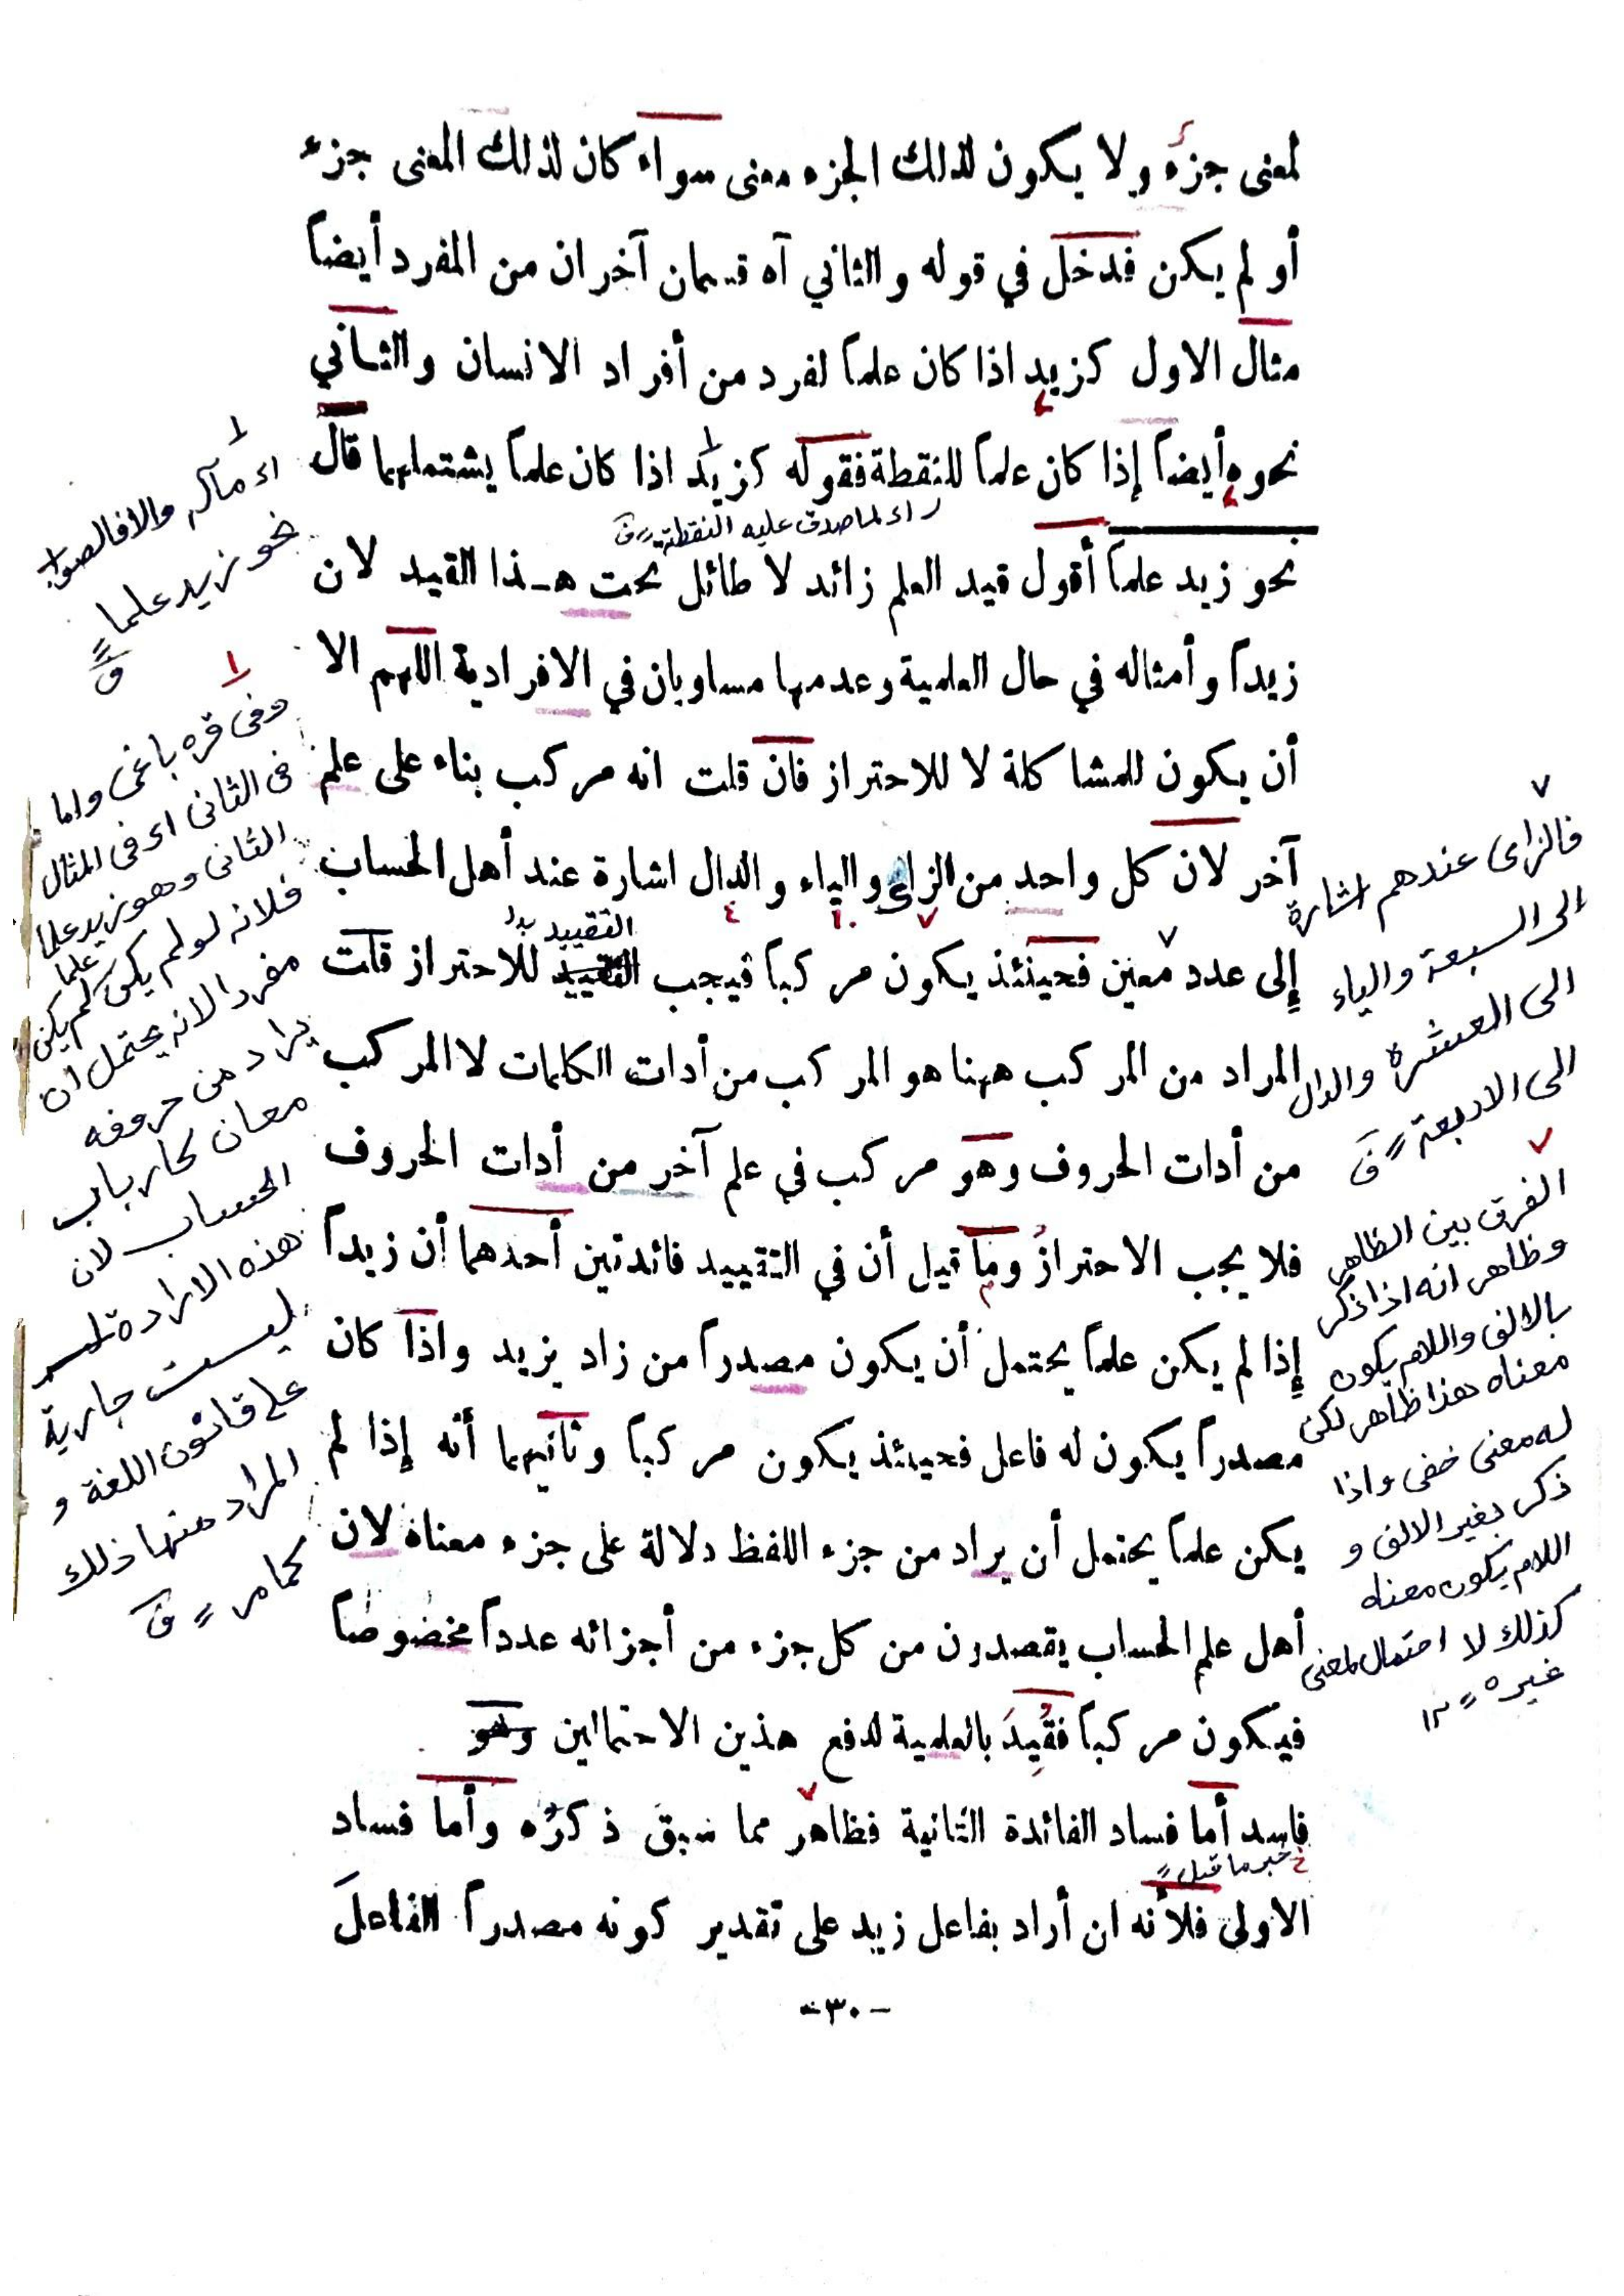 لمعنى جزء ولا يكون لذلك الجزء معنى سواء كان لذلك المعنى جزء
أو لم يكن فدخل في قوله والثاني آه قسمان آخران من المفرد أيضاً
مثال الاول كزيد اذا كان علماً لفرد من أفراد الانسان والثاني
نحوه أيضاً إذا كان علماً للنقطة فقوله كزيد اذا كان علماً يشتملهما قال
اء لماصدق عليه النقطة
نحو زيد علماً أقول قيد العلم زائد لا طائل تحت هذا القيد لان
زيداً وأمثاله في حال العلمية وعدمها مساويان في الافرادية اللهم الا
أن يكون للمشاكلة لا للاحتراز فان قلت انه مركب بناء على علم
آخر لان كل واحد من الزاى والياء والدال اشارة عند أهل الحساب
التقييد بدا
إلى عدد معين فحينئذ يكون مركباً فيجب التقييد للاحتراز قلت
المراد من المركب ههنا هو المركب من أدات الكلمات لا المركب
من أدات الحروف وهو مركب في علم آخر من أدات الحروف
فلا يجب الاحتراز وما قيل أن في التقييد فائدتين أحدهما أن زيداً
إذا لم يكن علماً يحتمل أن يكون مصدراً من زاد يزيد واذا كان
مصدراً يكون له فاعل فحينئذ يكون مركباً وثانيهما أنه إذا لم
يكن علماً يحتمل أن يراد من جزء اللفظ دلالة على جزء معناه لان
أهل علم الحساب يقصدون من كل جزء من أجزائه عدداً مخصوصاً
فيكون مركباً فقُيِّدَ بالعلمية لدفع هذين الاحتمالين وهو
فاسد أما فساد الفائدة الثانية فظاهر مما سبق ذكرُه وأما فساد
خبر ما قيل
الاولى فلأنه ان أراد بفاعل زيد على تقدير كونه مصدراً الفاعلَ
-٣٠-
اء مآله والافالصواب
نحو زيد علما
ق
وفى قره باغى واما
فى الثانى اء فى المثال
الثانى وهو زيد علما
فلانه لو لم يكن علما لم يكن
مفردا لانه يحتمل ان
يراد من حروفه
معان كارباب
الحساب لان
هذه الارادة
ليست جارية
على قانون اللغة و
المراد منها ذلك
كمامر ق
فالزاى عندهم اشارة
الى السبعة والياء
الى العشرة والدال
الى الاربعة ق
الفرق بين الظاهر
وظاهر انه اذا ذكر
بالالف واللام يكون
معناه هذا ظاهر لكن
له معنى خفى واذا
ذكر بغير الالف و
اللام يكون معناه
كذلك لا احتمال لمعنى
غيره ١٢